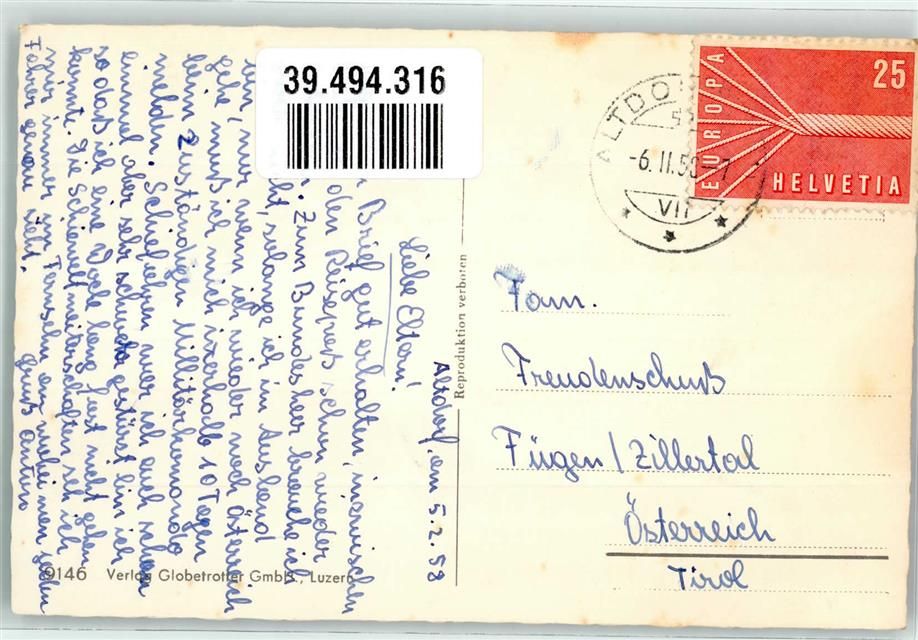 Altdorf, am 5.2.58
Liebe Eltern!
Brief gut erhalten, inzwischen
den Reisepreß schon wieder
Zum Bundesheer brauche ich
nicht, solange ich im Ausland
nur, wenn ich wieder nach Österreich
gehe, muß ich mich innerhalb 10 Tagen
beim zuständigen Militärkomando
melden. Schiefahren war ich auch schon
einmal aber sehr schwer gestürzt bin ich
so daß ich eine Woche lang fast nicht gehen
konnt. Die Schieweltmeisterschaften seh ich
mir immer im Fernsehn an, wobei man jeden
Fahrer genau sieht. Gruß Anton
39.494.316
9146 Verlag Globetrotter GmbH., Luzern
Reproduktion verboten
EUROPA
25
HELVETIA
ALTDO
-6.II.58-7
VII
Fam.
Freudenschuß
Fügen/Zillertal
Österreich
Tirol